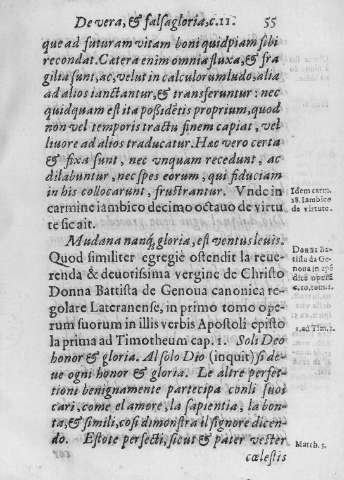 De vera, & falsa gloria, c. 11. 55
que ad futuram vitam boni quidpiam sibi
recondat. Cætera enim omnia fluxa, & fra
gilia sunt, ac, velut in calculorum ludo, alia
ad alios iactantur, & transferuntur: nec
quidquam est ita poßidētis proprium, quod
non vel temporis tractu finem capiat, vel
liuore ad alios traducatur. Hæc vero certa
& fixa sunt, nec vnquam recedunt, ac
dilabuntur, nec spes eorum, qui fiduciam
in his collocarunt, frustrantur. Vnde in
carmine iambico decimo octauo de virtu
te sic ait.
Idem carm.
18. iambico
de virtute.
Mūdana nanq; gloria, est ventus leuis.
Quod similiter egregiè ostendit la reue-
renda & deuotissima vergine de Christo
Donna Battista de Genoua canonica re-
golare Lateranense, in primo tomo ope-
rum suorum in illis verbis Apostoli episto
la prima ad Timotheum cap. 1. Soli Deo
honor & gloria. Al solo Dio (inquit) si de-
ue ogni honor & gloria. Le altre perfet-
tioni benignamente partecipa con li suoi
cari, come el amore, la sapientia, la bon-
ta, & simili, cosi dimonstra il signore dicen-
do. Estote perfecti, sicut & pater vester
cœlestis
Donna Ba-
tista da Ge
noua in
c. 10. tom. 1.
1. ad Tim. 1.
Matth. 5.